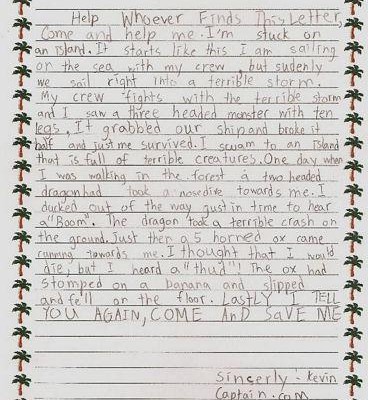 Help Whoever Finds This Letter,
Come and help me. I'm stuck on
an island. It starts like this I am sailing
on the sea with my crew but sudenly
we sail right into a terrible storm.
My crew fights with the terrible storm
and I saw a three headed monster with ten
legs. It grabbed our ship and broke it
half and just me survived. I swam to an island
that is full of terrible creatures. One day when
I was walking in the forest a two headed
dragon had took a nosedive towards me. I
ducked out of the way just in time to hear
a "Boom". The dragon took a terrible crash on
the ground. Just then a 5 horned ox came
running towards me. I thought that I would
die, but I heard a "thud"! The ox had
stomped on a banana and slipped
and fell on the floor. LaSTLY I TELL
YOU AGAIN, COME AnD SaVE ME
Sincerly - Kevin
Captain.com